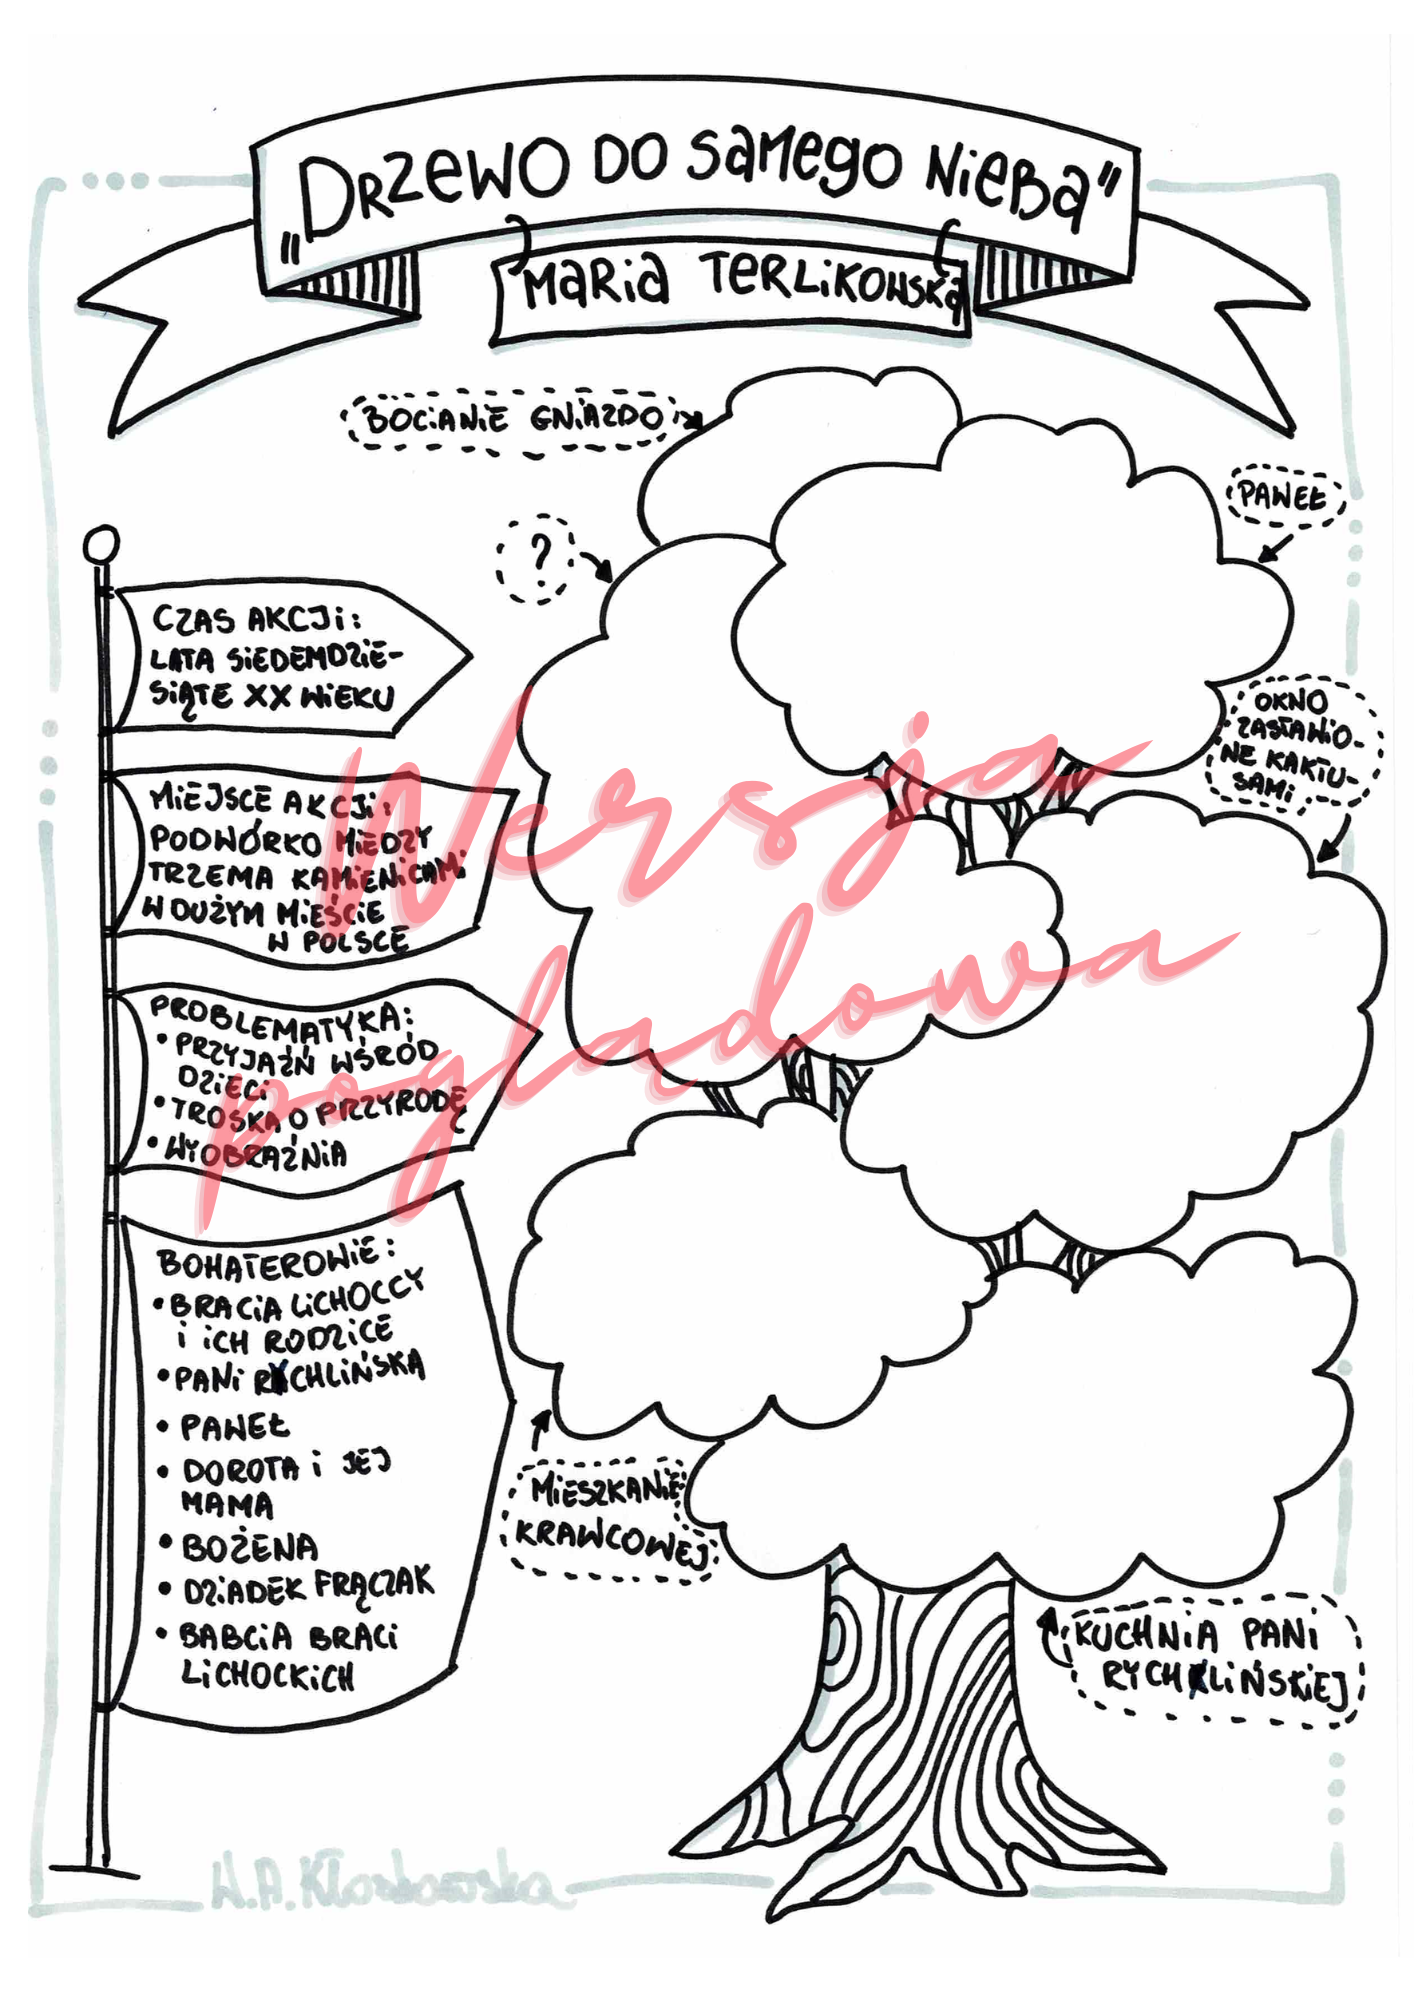 „Drzewo do samego nieba”
Maria Terlikowska
BOCIANIE GNIAZDO
PAWEŁ
?
CZAS AKCJI:
LATA SIEDEMDZIE-
SIĄTE XX WIEKU
OKNO
ZASTAWIO-
NE KAKTU-
SAMI
MIEJSCE AKCJI:
PODWÓRKO MIĘDZY
TRZEMA KAMIENICAMI
W DUŻYM MIEŚCIE
W POLSCE
PROBLEMATYKA:
• PRZYJAŹŃ WŚRÓD
DZIECI
• TROSKA O PRZYRODĘ
• WYOBRAŹNIA
BOHATEROWIE:
• BRACIA LICHOCCY
I ICH RODZICE
• PANI RYCHLIŃSKA
• PAWEŁ
• DOROTA I JEJ
MAMA
• BOŻENA
• DZIADEK FRĄCZAK
• BABCIA BRACI
LICHOCKICH
MIESZKANIE
KRAWCOWEJ
KUCHNIA PANI
RYCHLIŃSKIEJ
Wersja
poglądowa